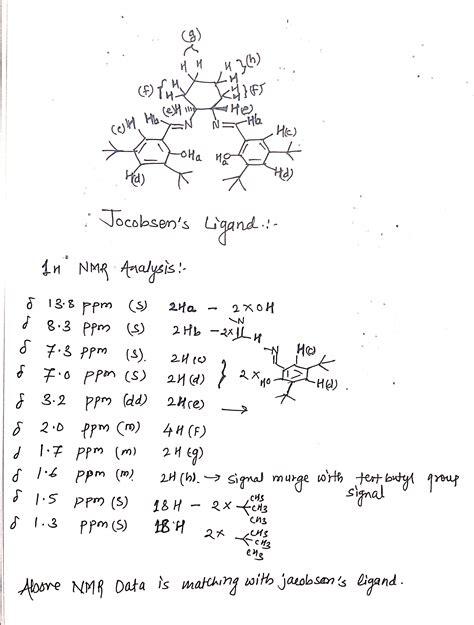 (g)
H H H }(h)
(f){ H H H }(f)
(e)H H(e)
(c)H Hb N N Ha H(c)
OHa HO a
H(d) H(d)
Jocobsen's Ligand :-
1H NMR Analysis:-
δ 13.8 ppm (s) 2Ha - 2xOH
δ 8.3 ppm (s) 2Hb - 2x N H
δ 7.3 ppm (s). 2H (c)
δ 7.0 ppm (s) 2H (d) } 2x N HO H(c) H(d)
δ 3.2 ppm (dd) 2H(e) →
δ 2.0 ppm (m) 4H (F)
δ 1.7 ppm (m) 2H (g)
δ 1.6 ppm (m) 2H (h) → signal murge with tert butyl group signal
δ 1.5 ppm (s) 18H - 2x CH3 CH3 CH3
δ 1.3 ppm (s) 18H 2x CH3 CH3 CH3
Above NMR Data is matching with jacobson's ligand.